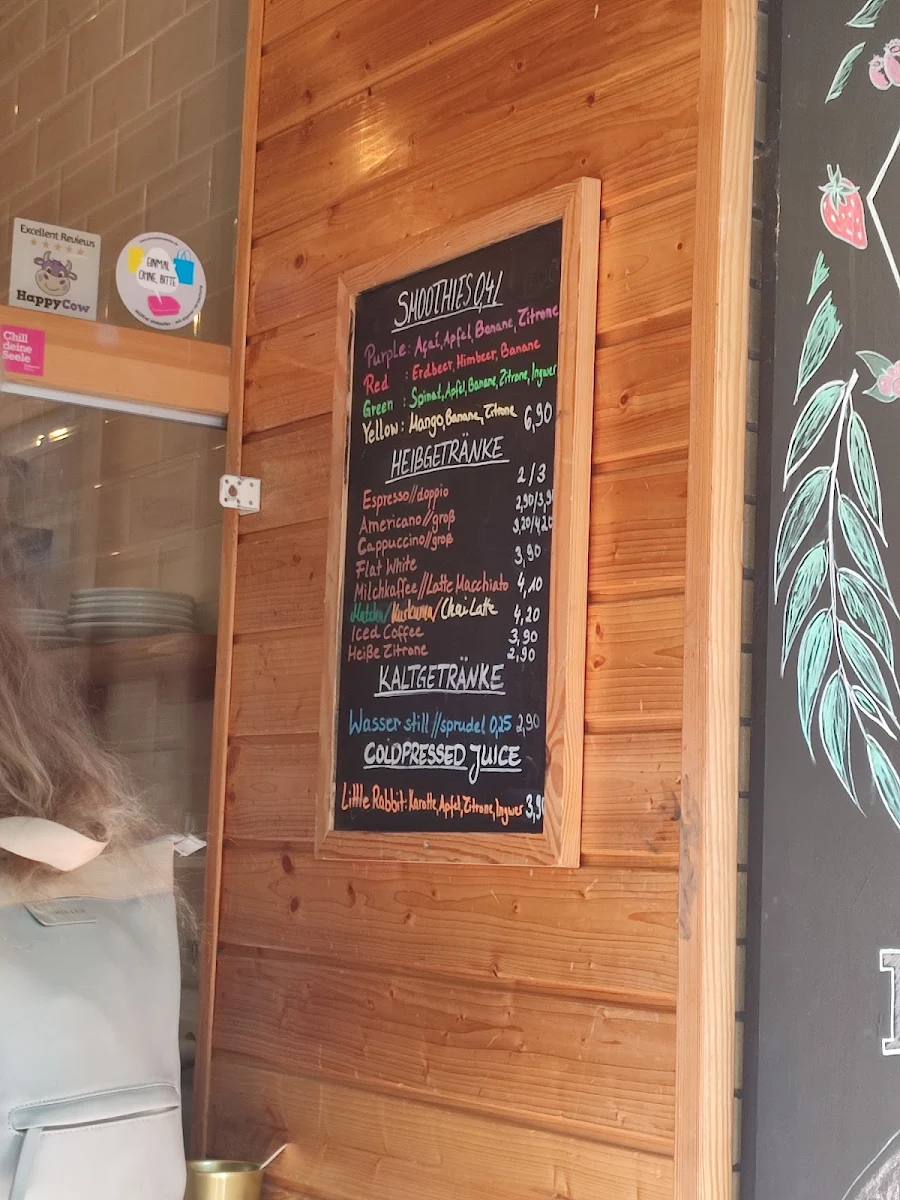 Excellent Reviews
HappyCow
EINMAL
OHNE, BITTE
Chill
deine
Seele
SMOOTHIES 0,4l
Purple: Açai, Apfel, Banane, Zitrone
Red : Erdbeer, Himbeer, Banane
Green : Spinat, Apfel, Banane, Zitrone, Ingwer
Yellow: Mango, Banane, Zitrone 6,90
HEIßGETRÄNKE
Espresso//doppio 2/3
Americano//groß 2,90/3,90
Cappuccino//groß 3,20/4,20
Flat White 3,90
Milchkaffee//Latte Macchiato 4,10
Matcha/Kurkuma/Chai Latte 4,20
Iced Coffee 3,90
Heiße Zitrone 2,90
KALTGETRÄNKE
Wasser still//sprudel 0,25 2,90
COLDPRESSED JUICE
Little Rabbit: Karotte, Apfel, Zitrone, Ingwer 3,90